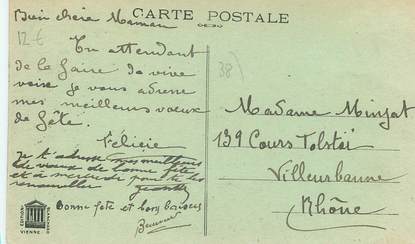 CARTE POSTALE
Bien chère Maman
12 €
En attendant
de le faire de vive
voix je vous adresse
mes meilleurs voeux de
fête.
Félicie
je t'adresse mes meilleurs
voeux de bonne fête
et à mercredi pour te les
renouveler
Bonne fête et bons baisers
38)
Madame Minjat
139 Cours Tolstoï
Villeurbanne
Rhône
EDITION
VIENNE